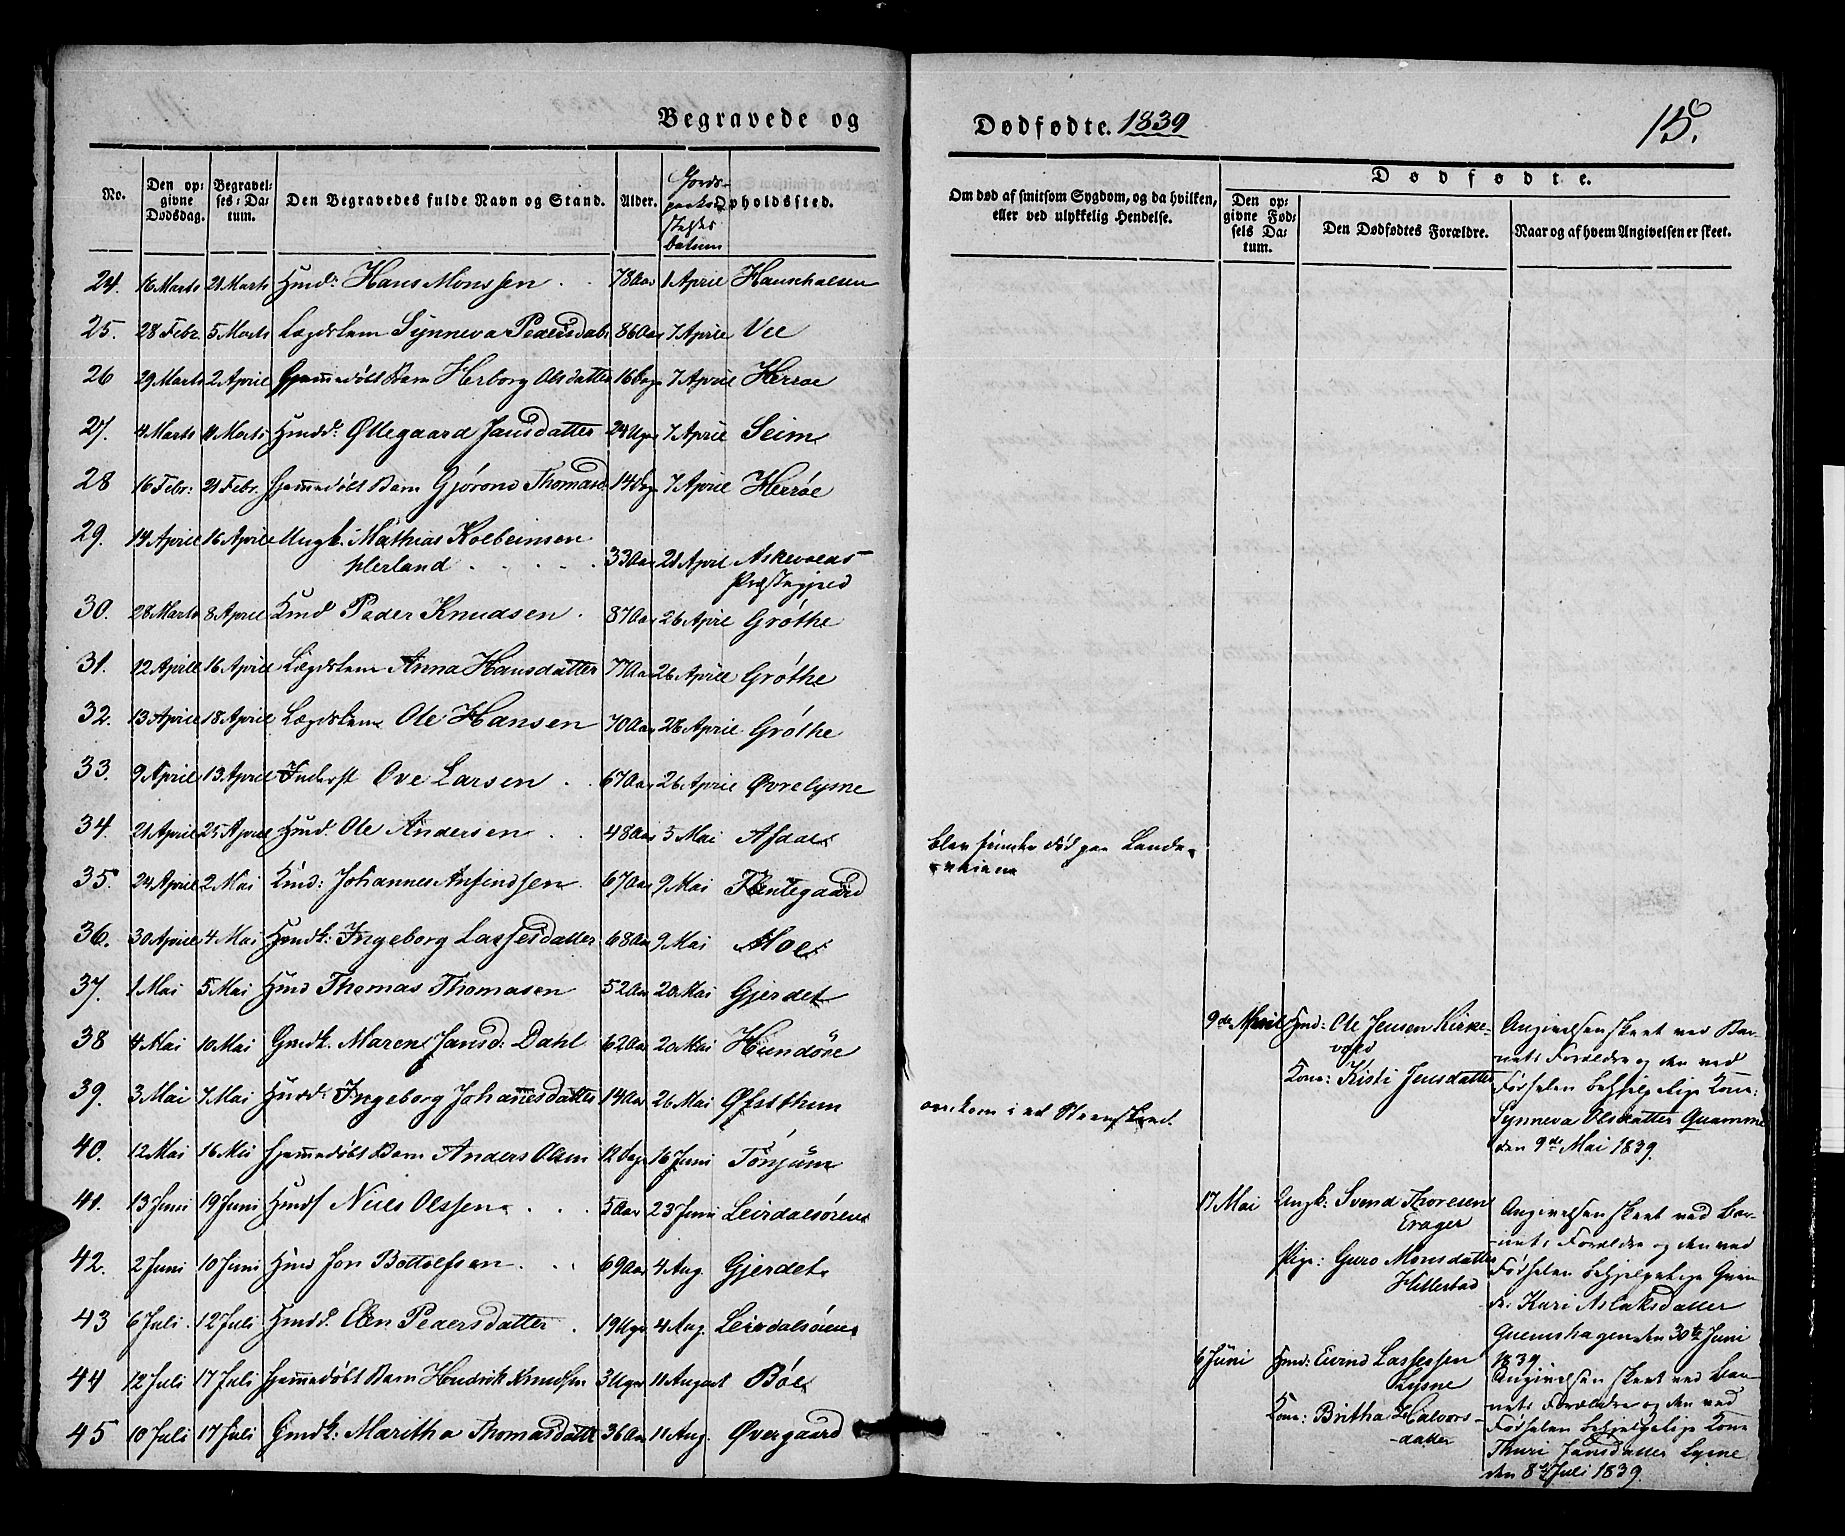 Begravede og
No.
Den op-
givne
Dødsdag.
Begravel-
ses-Da-
tum.
Den Begravedes fulde Navn og Stand.
Alder.
Jords-
Datum
Opholdssted.
24. 16 Marts 21 Marts Hmd: Hans Monssen 78 Aar 1 April
25. 28 Febr. 5 Marts Lægdslem Synneva Pedersdatr 86 Aar 7 April Vee
26 29 Marts 2 April Hjemmedøbt Barn Herborg Olsdatter 16 Dage 7 April Herøe
27. 4 Marts 11 Marts Hmdd: Øllegaard Jansdatter 24 Uger 7 April Seim
28 16 Febr: 21 Febr. Hjemmedøbt Barn Gjørond Thomasd 14 Dage 7 April Herøe
29. 14 April 16 April Ungk. Mathias Kolbeinsen
33 Aar 21 April Askevolds
Præstegjeld
30. 28 Marts 8 April Kmd Peder Knudsen 87 Aar 26 April Grøthe
31. 12 April 16 April Lægdslem Anna Hansdatter 77 Aar 26 April Grøthe
32. 13 April 18 April Lægdslem Ole Hansen 70 Aar 28 April Grøthe
33. 9 April 13 April Inderst Ove Larsen 67 Aar 26 April Øvrelysne
34. 21 April 25 April Hmd. Ole Andersen 48 Aar 5 Mai Afdal
35. 24 April 2 Mai Kmd: Johannes Anfindsen 67 Aar 9 Mai
36. 30 April 4 Mai Hmdk: Ingeborg Lassesdatter 68 Aar 9 Mai Moe
37. 1 Mai 5 Mai Hmd Thomas Thomasen 52 Aar 20 Mai Gjerdet
38 4 Mai 10 Mai Gmdk. Maren Jansd: Dahl 62 Aar 20 Mai Hundøre
39. 3 Mai 7 Mai Hmdd: Ingeborg Johannesdatter 14 Aar 26 Mai Øfstthun
40. 12 Mai 16 Mai Hjemmedøbt Barn Anders Olsen 12 Dage 16 Juni Tønjum
41. 13 Juni 19 Juni Hmds Niels Olssen 5 Aar 23 Juni Leirdalsøren
42. 2 Juni 10 Juni Hmd Jon Bottolfsen 69 Aar 4 Aug. Gjerdet
43 6 Juli 12 Juli Hmdd. Elen Pedersdatter 19 Uger 4 Aug. Leirdalsøren
44 12 Juli 17 Juli Hjemmedøbt Barn Hendrik Knudsen 3 Uger 11 August Bøe
45 10 Juli 17 Juli Gmdk: Maritha Thomasdattr 36 Aar 11 Aug. Øvergaard
Dødfødte. 1839
15.
Om død af smitsom Sygdom, og da hvilken,
eller ved ulykkelig Hendelse.
Dødfødte.
Den op-
givne Fød-
sels Da-
tum.
Den Dødfødtes Forældre.
Naar og af hvem Angivelsen er skeet.
blev funden død paa Lande-
veien
omkom i ed Steenskred.
9de April Hmd: Ole Jensen Kirke-
vold
Kone: Kisti Jensdatter
Angivelsen skeet ved Bar-
nets Forældre og den ved
Fødselen behjelpelige Kone:
Synneva Olsdatter Quamme
den 9de Mai 1839.
17 Mai Ungk: Svend Thoresen
Erager
Pige: Guro Monsdatter
Hillestad
Angivelsen skeet ved Bar-
nets Forældre og den ved
Fødselen behjelpelige Quin-
de. Kari Aslaksdatter
Quemshagen den 30te Juni
1839.
6 Juni Hmd: Eivind Lassessen
Lysne
Kone: Britha Halvors-
datter
Angivelsen skeet ved Bar-
nets Forældre og den ved
Fødselen behjelpelige Kone
Thuri Jansdatter Lysne
den 8de Juli 1839.